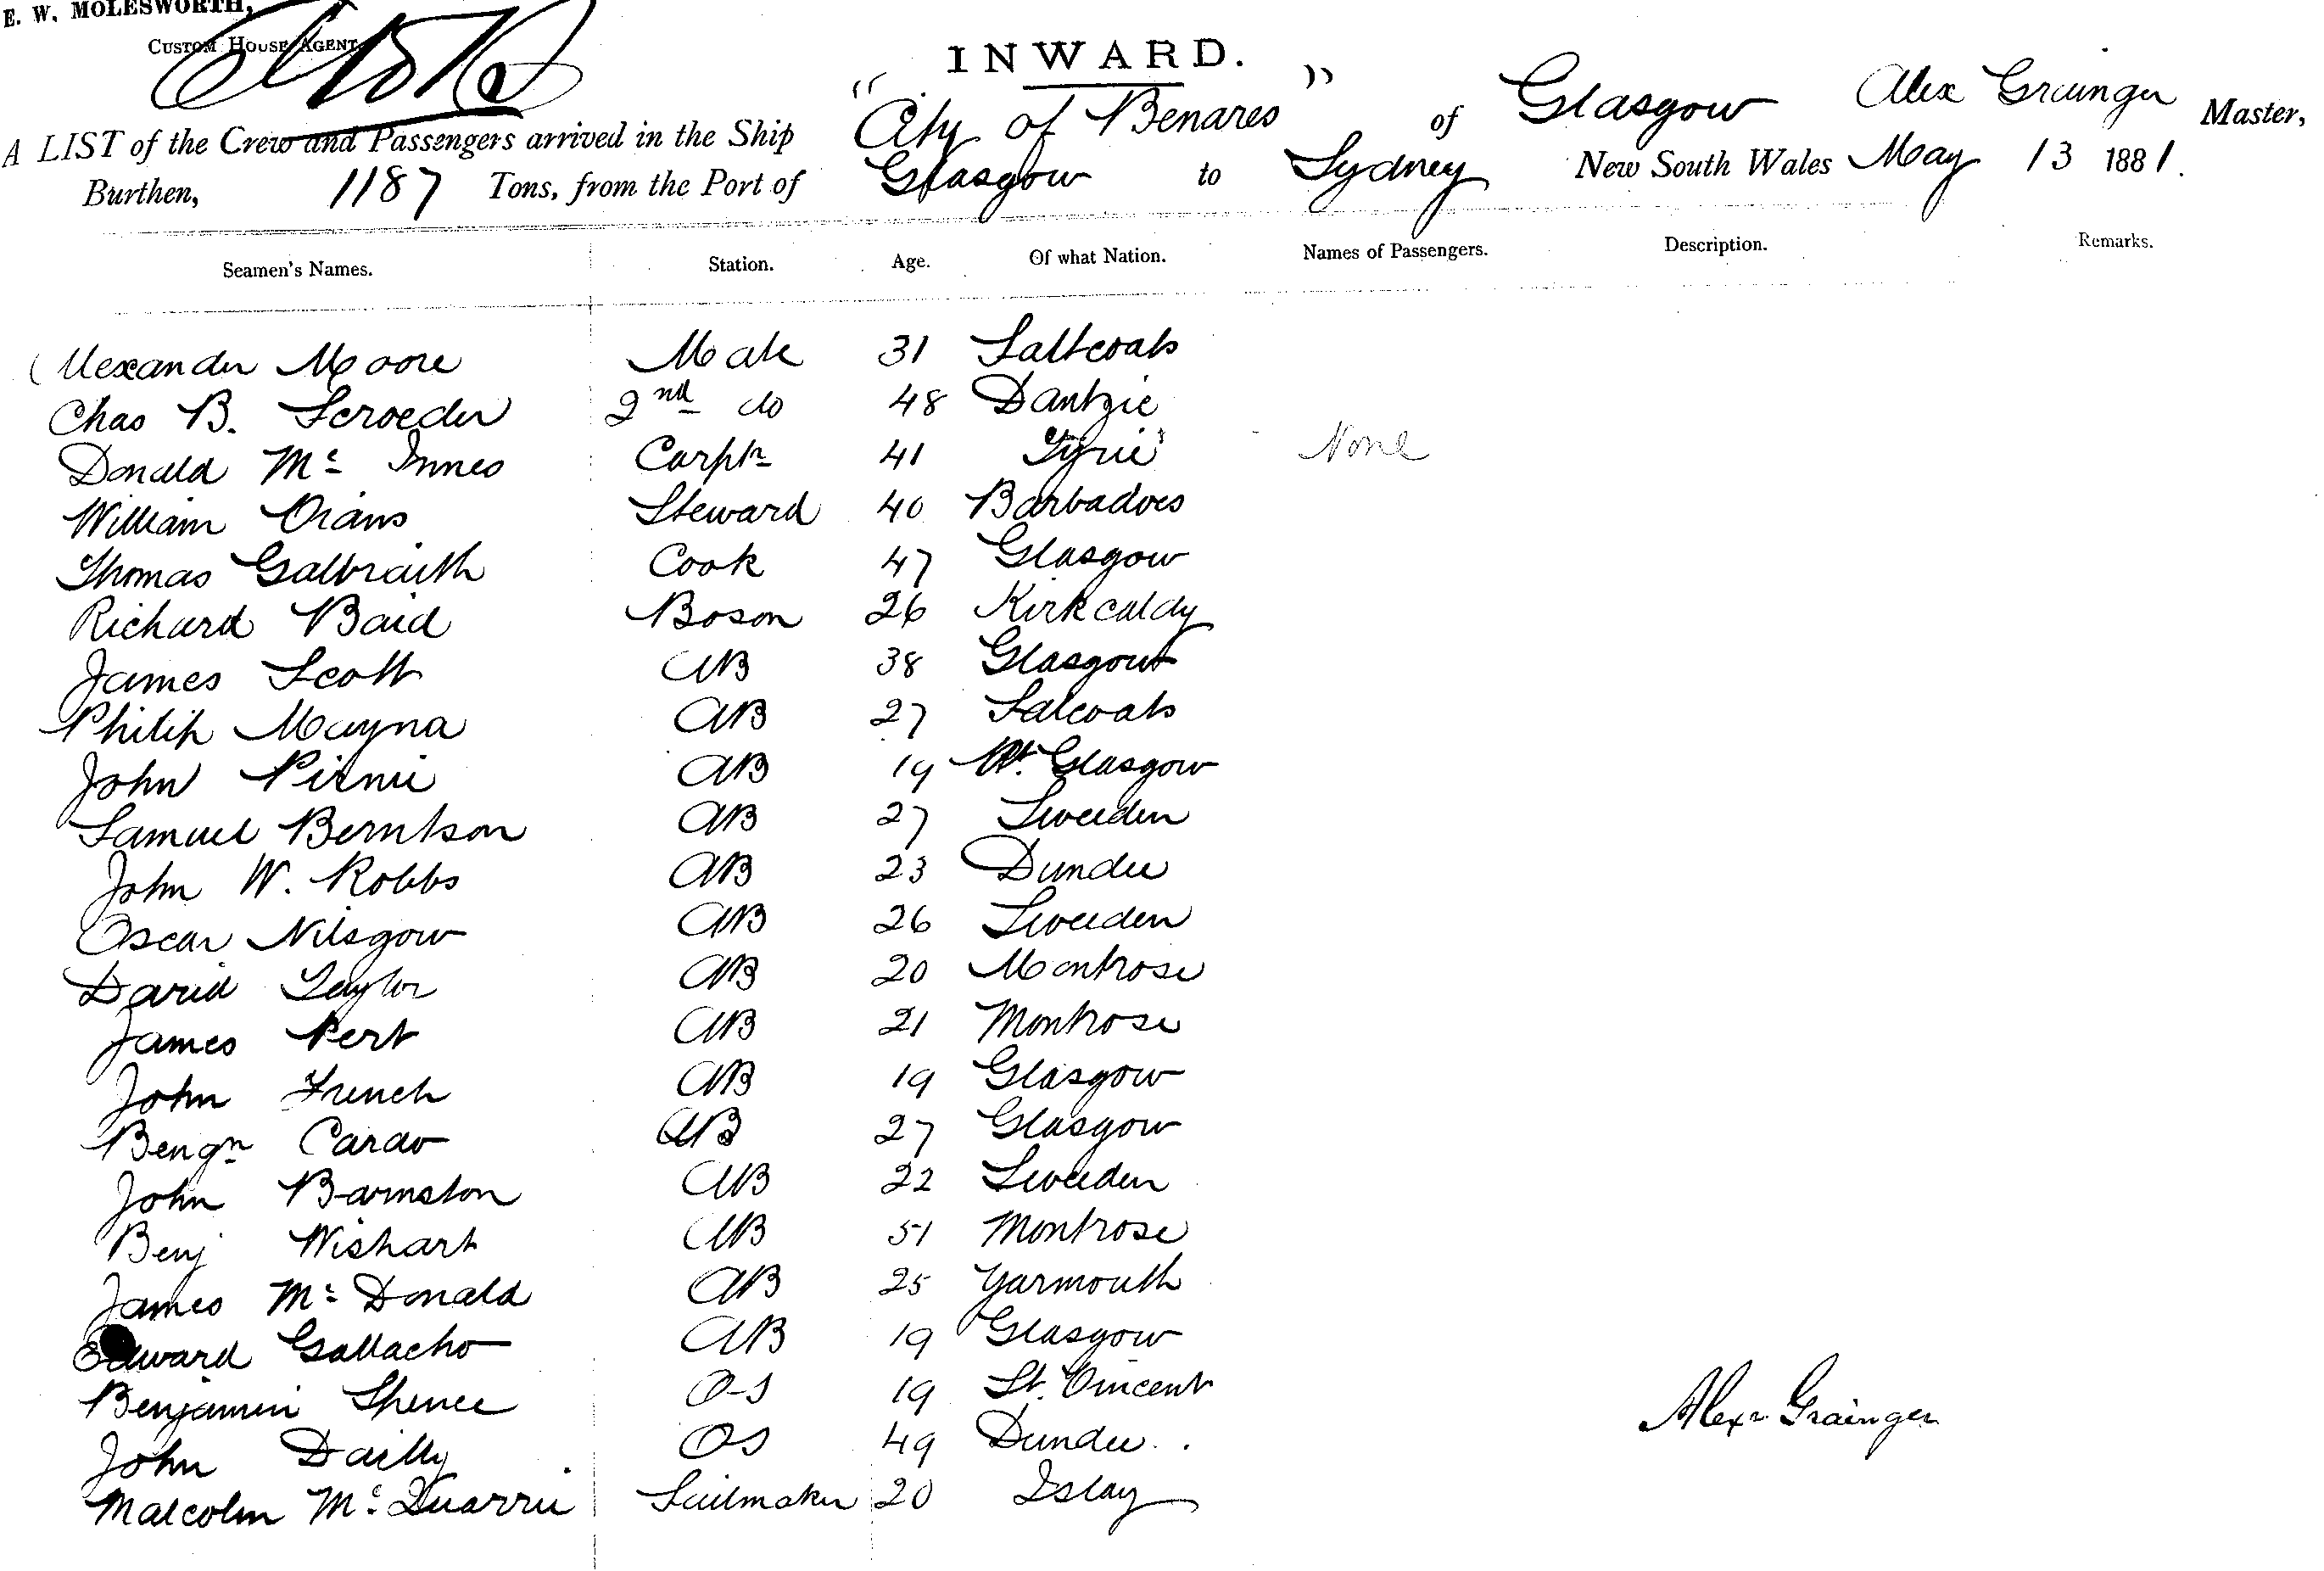 E. W. MOLESWORTH,
CUSTOM HOUSE AGENT
INWARD.
A LIST of the Crew and Passengers arrived in the Ship "City of Benares" of Glasgow Alex Grainger Master,
Burthen, 1187 Tons, from the Port of Glasgow to Sydney New South Wales May 13 1881.
Seamen's Names. Station. Age. Of what Nation. Names of Passengers. Description. Remarks.
Alexander Moore Mate 31 Saltcoats
Chas B. Scroeder 2nd do 48 Dantzic
Donald Mc Innes Carptr 41 Tyrie None
William Evans Steward 40 Barbadoes
Thomas Galbraith Cook 47 Glasgow
Richard Baid Boson 26 Kirkcaldy
James Scott AB 38 Glasgow
Philip Mayna AB 27 Salcoats
John Pirnie AB 19 Pt. Glasgow
Samuel Berntson AB 27 Sweeden
John W. Robbs AB 23 Dundee
Oscar Nilsgow AB 26 Sweeden
David Taylor AB 20 Montrose
James Pert AB 21 Montrose
John French AB 19 Glasgow
Bengn Cardo AB 27 Glasgow
John Barnston AB 22 Sweeden
Benj Wishart AB 51 Montrose
James Mc Donald AB 25 Yarmouth
Edward Gallacho AB 19 Glasgow
Benjamin Spence O-S 19 St. Vincent
John Dailly OS 49 Dundee
Malcolm Mc Quarrie Sailmaker 20 Islay
Alexr Grainger